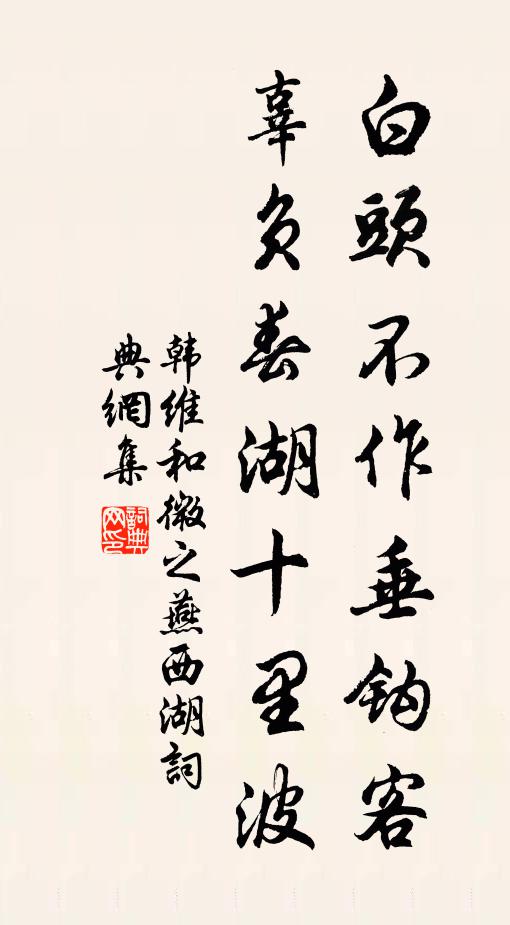 白頭不作垂鈎客
辜負春湖十里波
韩維和微之燕西湖詞
典網集
詞典網印